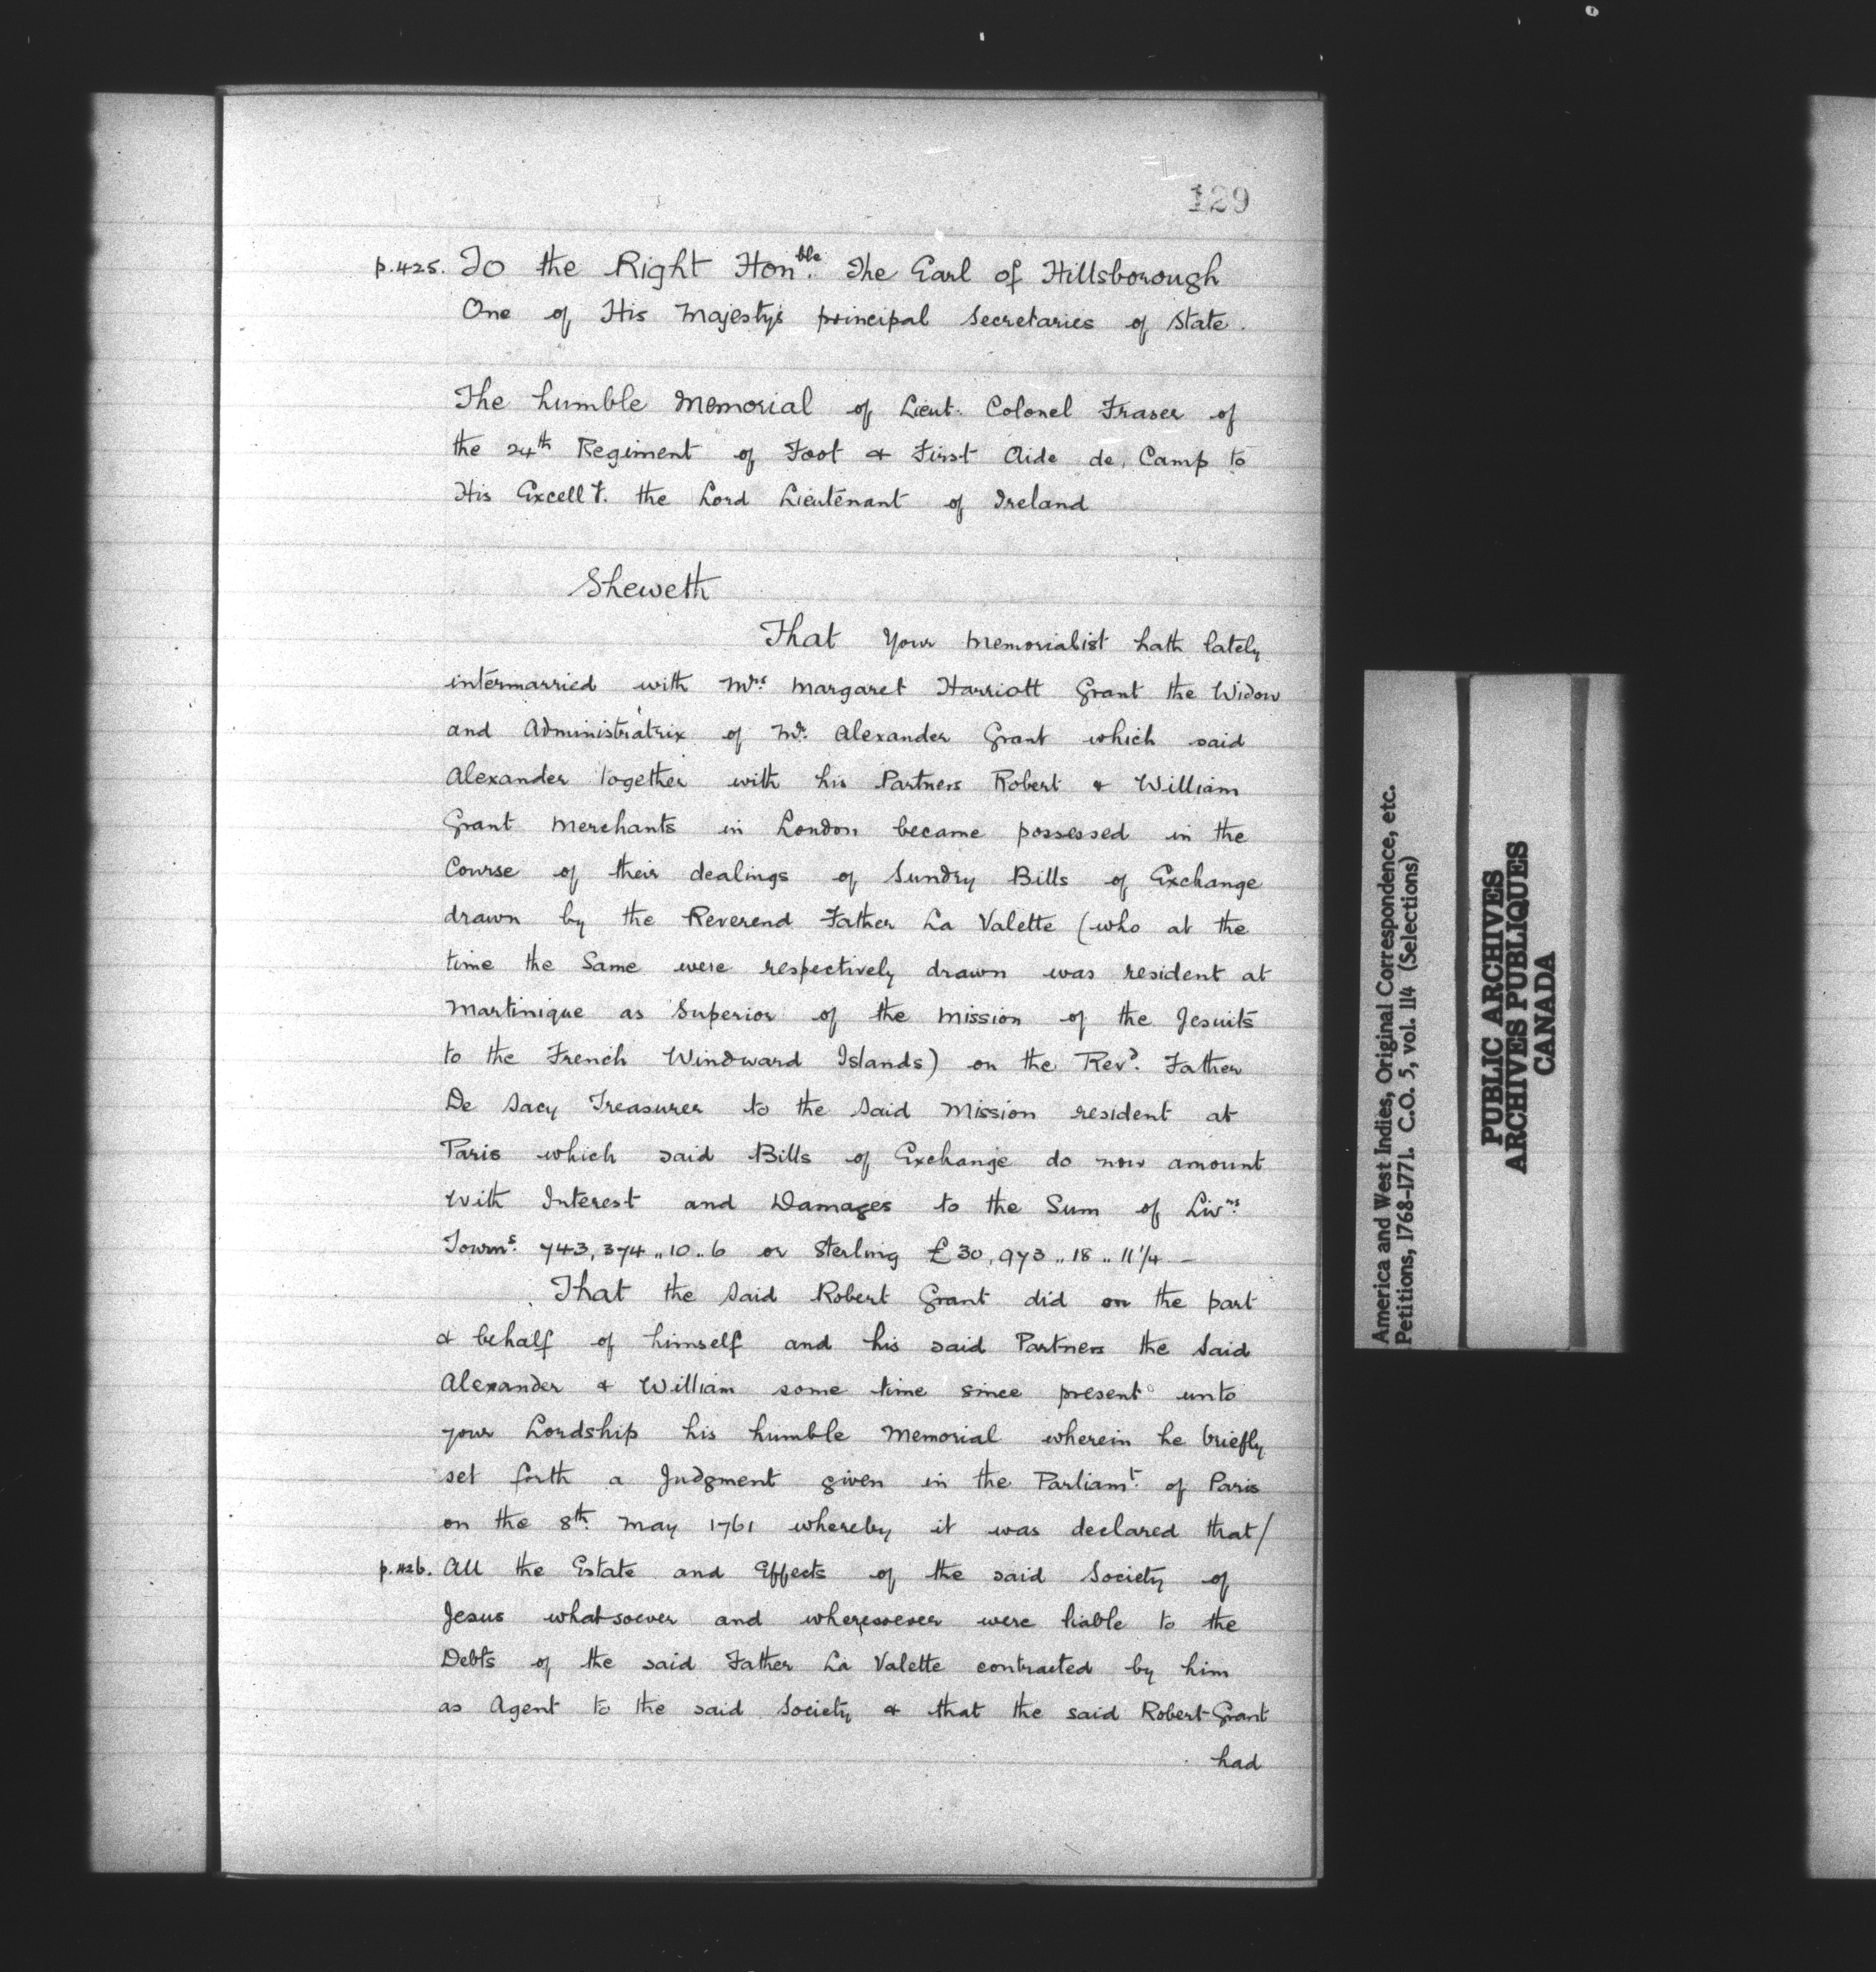 129
p.425. To the Right Honble. The Earl of Hillsborough
One of His Majesty's principal Secretaries of State.
The humble Memorial of Lieut. Colonel Fraser of
the 24th Regiment of Foot & First Aide de Camp to
His Excelly. the Lord Lieutenant of Ireland
Sheweth
That Your Memorialist hath lately
intermarried with Mrs. Margaret Harriott Grant the Widow
and Administratrix of Mr. Alexander Grant which said
Alexander together with his Partners Robert & William
Grant Merchants in London became possessed in the
Course of their dealings of Sundry Bills of Exchange
drawn by the Reverend Father La Valette (who at the
time the Same were respectively drawn was resident at
Martinique as Superior of the Mission of the Jesuits
to the French Windward Islands) on the Revd. Father
De Sacy Treasurer to the Said Mission resident at
Paris which said Bills of Exchange do now amount
With Interest and Damages to the Sum of Livrs.
Tourns. 743,374..10..6 or Sterling £30,973..18..11 1/4 —
That the Said Robert Grant did on the part
& behalf of himself and his said Partners the Said
Alexander & William some time since present unto
your Lordship his humble Memorial wherein he briefly
set forth a Judgment given in the Parliamt. of Paris
on the 8th. May 1761 whereby it was declared that/
p.426. All the Estate and Effects of the said Society of
Jesus whatsoever and wheresoever were liable to the
Debts of the said Father La Valette contracted by him
as Agent to the said Society & that the said Robert Grant
had
America and West Indies, Original Correspondence, etc.
Petitions, 1768-1771. C.O. 5, vol. 114 (Selections)
PUBLIC ARCHIVES
ARCHIVES PUBLIQUES
CANADA